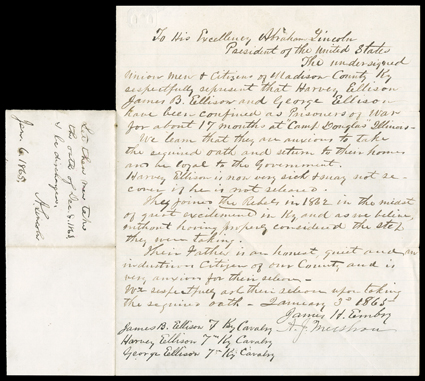 To His Excellency Abraham Lincoln
President of the United States
The undersigned
Union Men & Citizens of Madison County Ky
respectfully represent that Harvey Ellison
James B. Ellison and George Ellison
have been confined as Prisoners of War
for about 17 months at Camp Douglas Illinois -
We learn that they are anxious to take
the required oath and return to their homes
and be loyal to the Government.
Harvey Ellison is now very sick & may not re-
cover if he is not released.
They joined the Rebels in 1862 in the midst
of great excitement in Ky and as we believe,
without having properly considered the step
they were taking.
Their Father is an honest, quiet and an
industrious Citizen of our County and is
very anxious for their return -
We respectfully ask their release upon taking
the required oath - January 3d 1865
James H. Embry
James B. Ellison 7 Ky Cavalry
Harvey Ellison 7th Ky Cavalry
George Ellison 7th Ky Cavalry
Let these men take
the oath of Dec. 8, 1863
& be discharged
A. Lincoln
Jan. 6, 1865